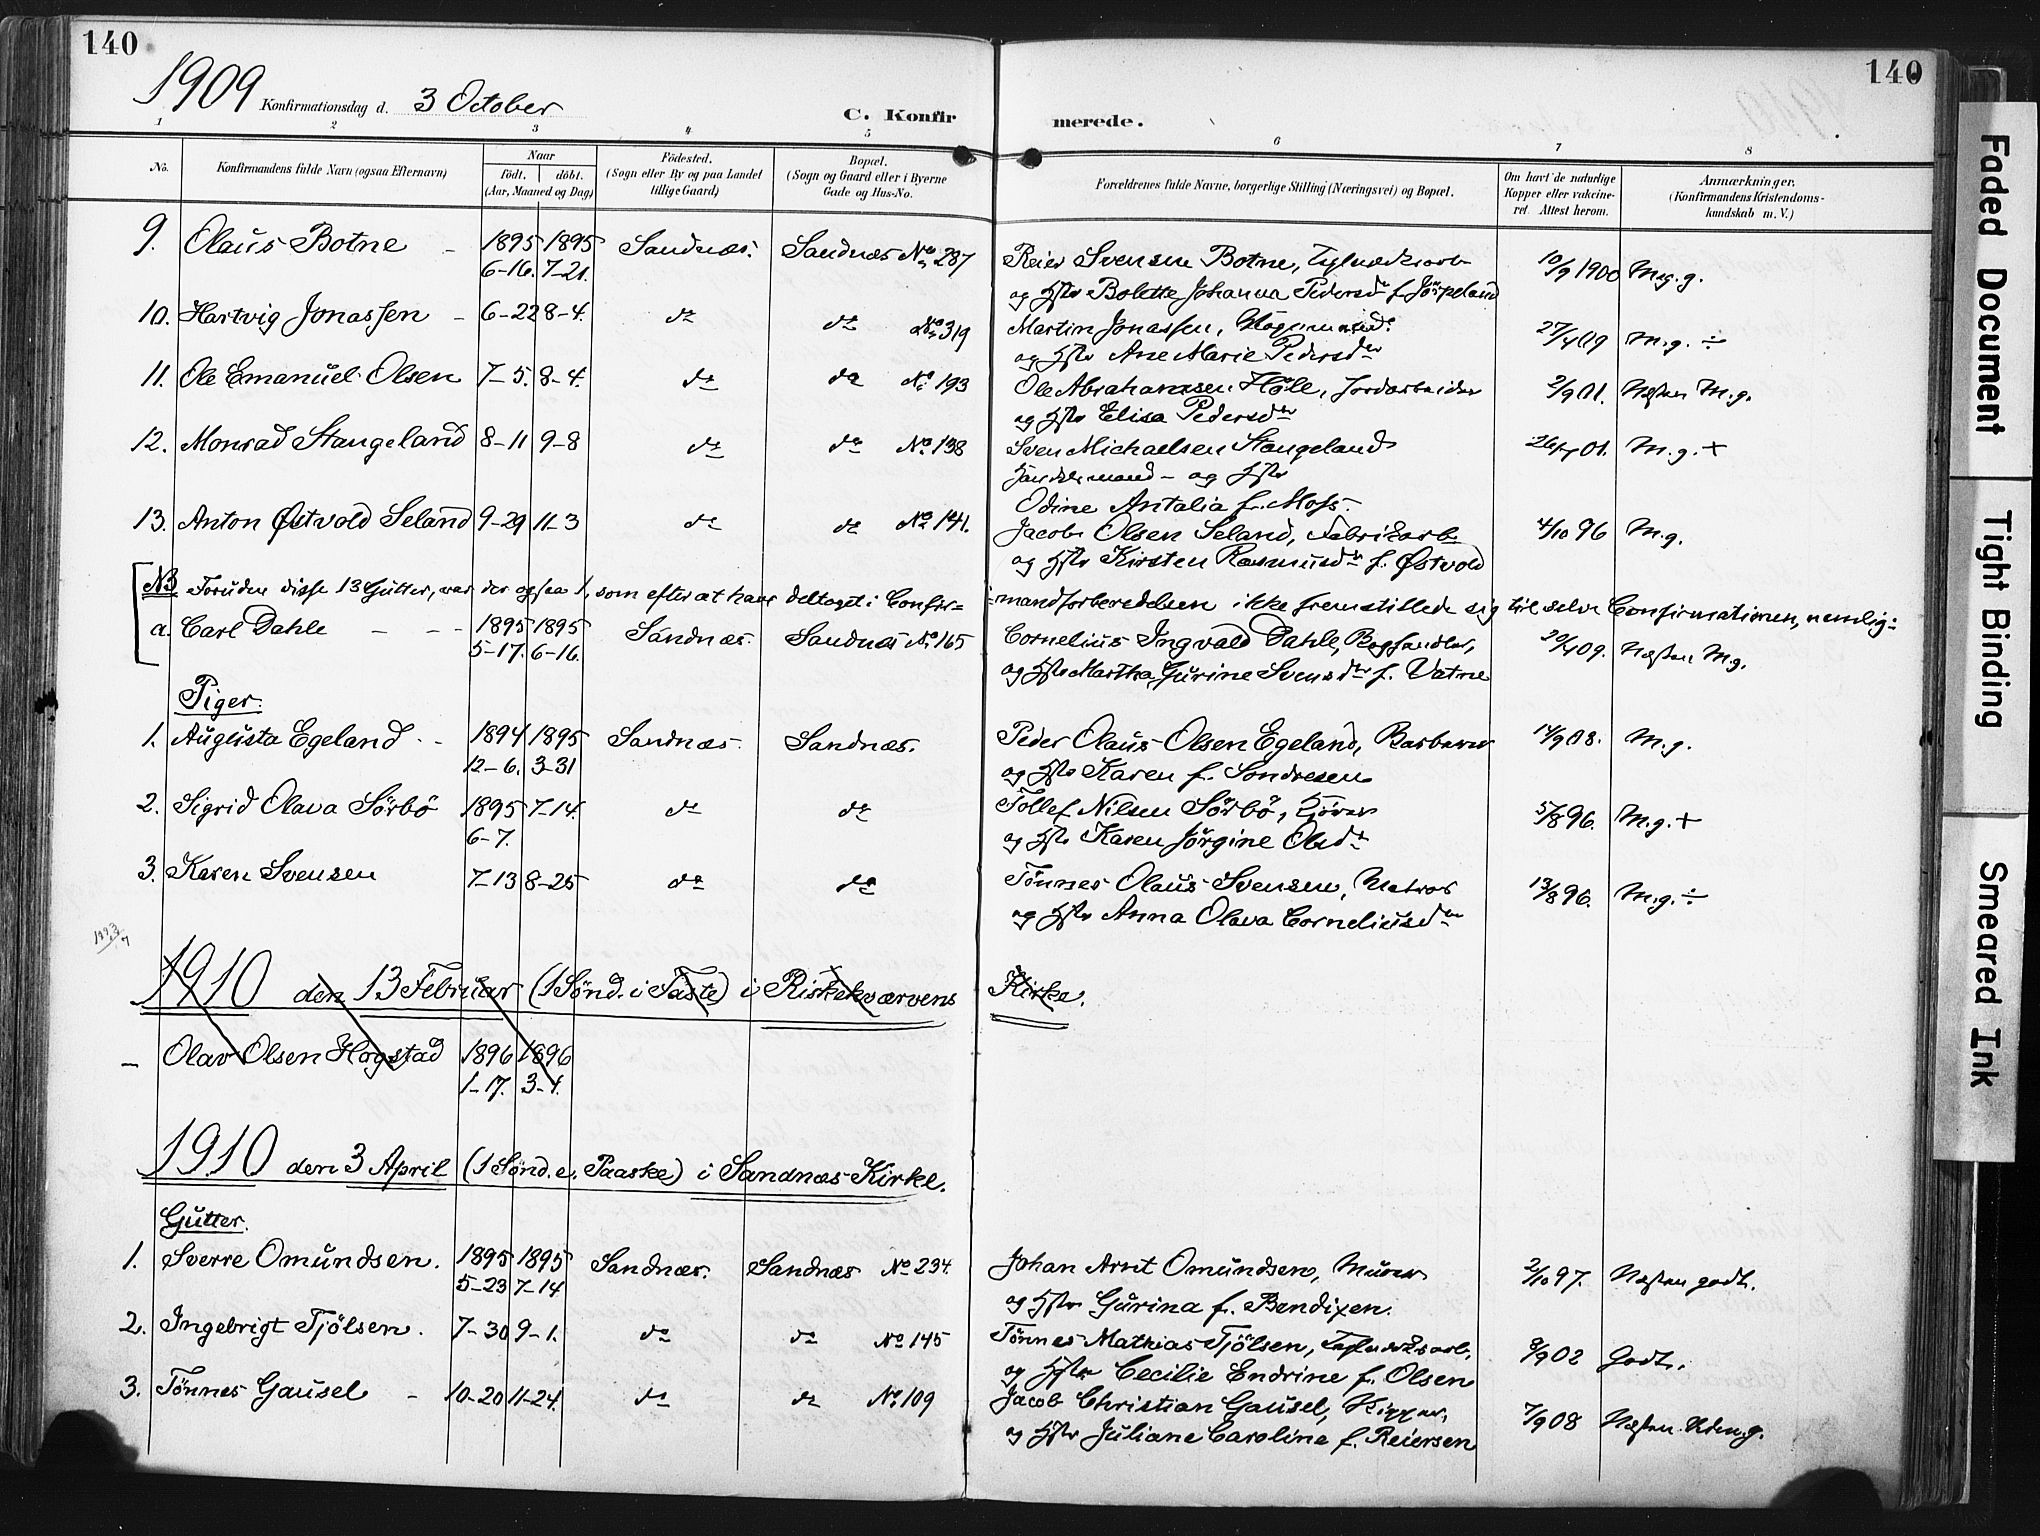 140
140
1909 Konfirmationsdag d. 3 October
C. Konfirmerede.
1 2 3 4 5 6 7 8
No. Konfirmandens fulde Navn (ogsaa Efternavn) Naar födt. döbt. (Aar, Maaned og Dag) Födested. (Sogn eller By og paa Landet tillige Gaard) Bopæl. (Sogn og Gaard eller i Byerne Gade og Hus-No. Forældrenes fulde Navne, borgerlige Stilling (Næringsvei) og Bopæl. Om havt de naturlige Kopper eller vakcineret. Attest herom. Anmærkninger. (Konfirmandens Kristendomskundskab m. V.)
9. Olaus Botne 1895 1895 Sandnæs. Sandnæs No 287 Reier Svensen Botne, 10/9 1900 M.g.
6-16. 7-21. og Hstr Bolette Johanna Pedersdr f. Jörpeland
10. Hartvig Jonassen 6-22 8-4. do do No 319 Martin Jonassen, M.g. ÷
og Hstr Ane Marie Pedersdr
11. Ole Emanuel Olsen 7-5. 8-4. do do No 193 Ole Abrahamsen Höle, Jordarbeider 2/9 01. Næsten M.g.
og Hstr Elisa Pedersdr
12. Monrad Stangeland 8-11 9-8 do do No 138 Sven Michaelsen Stangeland M.g. +
Handelsmand - og Hstr
Odine Antalia f. Moss.
13. Anton Østvold Seland 9-29 11-3 do do No 141. Jacob Olsen Seland, Fabrikarb 4/10 96 M.g.
og Hstr Kirsten Rasmusdr f. Østvold
NB Foruden disse 13 Gutter, var der ogsaa 1, som efter at have deltaget i Confir=mandforberedelsen ikke fremstillede sig til selve Confirmationen, nemlig:
a. Carl Dahle 1895 1895 Sandnæs. Sandnæs No 165 Cornelius Ingvald Dahle, Boghandler, Næsten M.g.
5-17. 6-16. og Hstr Martha Gurine Svensdr f. Vatne
Piger.
1. Augusta Egeland 1894 1895 Sandnæs. Sandnæs. Peder Olaus Olsen Egeland, Barberer 14/9 08. M.g.
12-6. 3-31 og Hstr Karen f. Sondresen
2. Sigrid Olava Sörbö 1895 7-14. do do Tollef Nilsen Sörbö, Kjörer 5/8 96. M.g. +
6-7. og Hstr Karen Jörgine Olsdr
3. Karen Svensen 7-13 8-25 do do Tönnes Olaus Svensen, Matros 13/8 96. M.g. ÷
og Hstr Anna Olava Corneliusdr
1910 den 13 Februar (1 Sönd. i Faste) i Riskekværvens Kirke.
- Olav Olsen Hogstad 1896 1896
1-17. 3-4.
1910 den 3 April (1 Sönd. e. Paaske) i Sandnæs Kirke.
Gutter.
1. Sverre Omundsen. 1895 1895 Sandnæs. Sandnæs No 234. Johan Arnt Omundsen, Murer 2/10 97. Næsten godt.
5-23 7-14 og Hstr Gurina f. Bendixen.
2. Ingebrigt Tjölsen. 7-30 9-1. do do No 145 Tönnes Mathias Tjölsen, 8/9 02 Godt.
og Hstr Cecilie Endrine f. Olsen
3. Tönnes Gausel 10-20 11-24. do do No 109 Jacob Christian Gausel, 7/9 08 Næsten
og Hstr Juliane Caroline f. Reiersen
Faded Document
Tight Binding
Smeared Ink